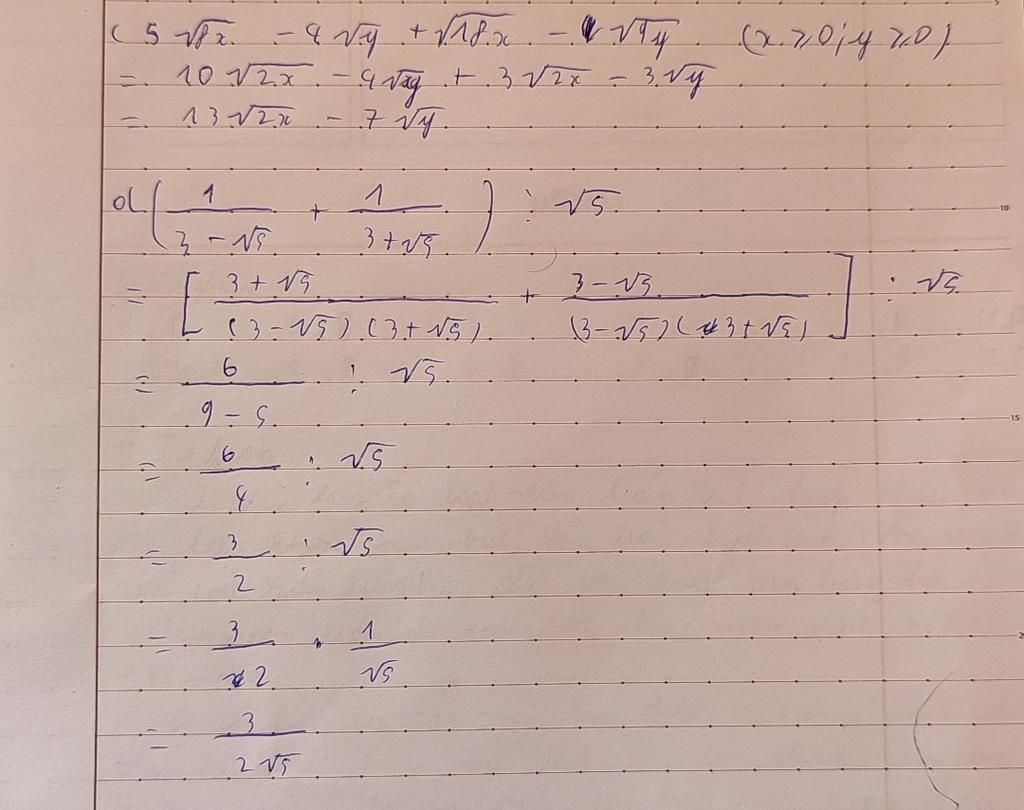 c 5√8x - 4√y + √18x - √9y (x ≥ 0; y ≥ 0)
= 10√2x - 4√y + 3√2x - 3√y
= 13√2x - 7√y
d. (1/(3 - √5) + 1/(3 + √5)) : √5
10
= [(3 + √5)/((3 - √5)(3 + √5)) + (3 - √5)/((3 - √5)(3 + √5))] : √5
= 6/(9 - 5) : √5
15
= 6/4 : √5
= 3/2 : √5
= 3/2 . 1/√5
= 3/(2√5)